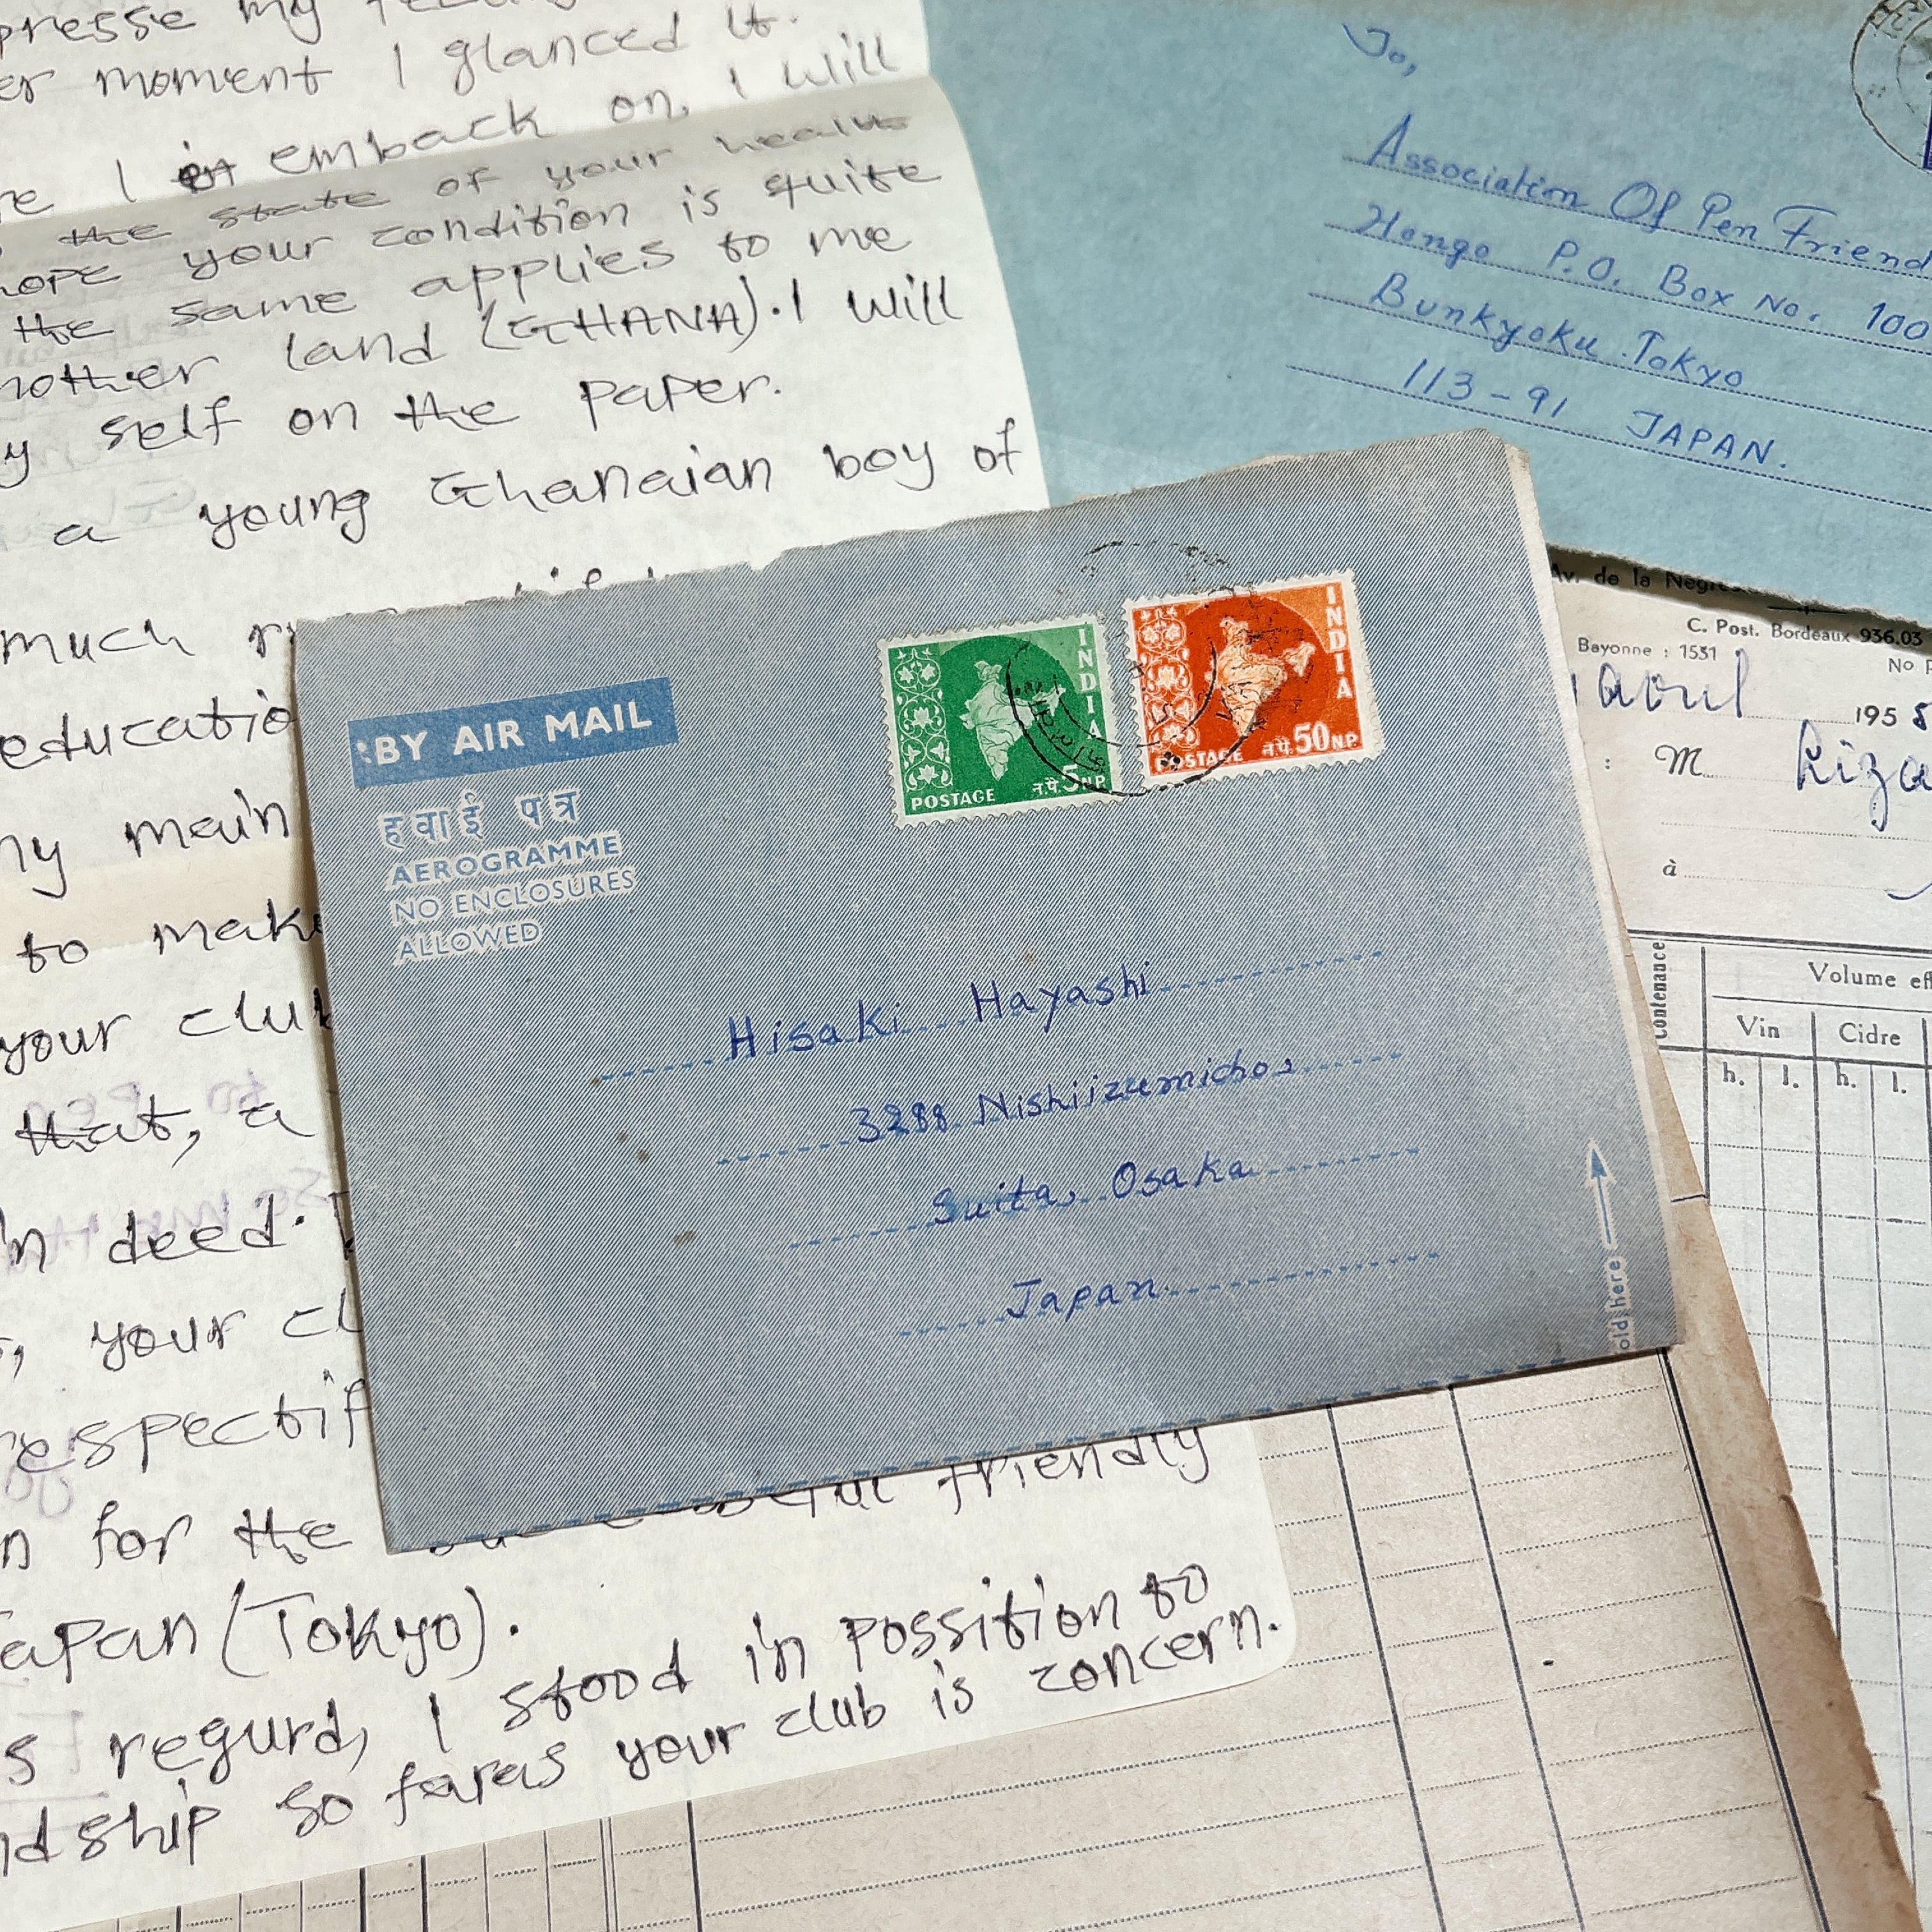 moment I glanced it.
I emback on, I will
the state of your health
your condition is quite
the same applies to me
land (GHANA). I will
self on the paper.
a young Ghanaian boy of
much
main
to
your
that, a
deed.
your
for the
friendly
(Tokyo).
regurd, I stood in possition to
so faras your club is concern.
To,
Association Of Pen Friend
Hongo P.O. Box No. 100
Bunkyoku Tokyo
113-91 JAPAN.
BY AIR MAIL
हवाई पत्र
AEROGRAMME
NO ENCLOSURES
ALLOWED
INDIA
POSTAGE न.पै.5 NP.
INDIA
POSTAGE न.पै.50 NP.
Hisaki Hayashi
3288 Nishiizumicho,
Suita, Osaka
Japan
old here
Av. de la
C. Post. Bordeaux 936.03
Bayonne : 1531
No
1958
: M
à
Contenance
Volume
Vin
Cidre
h. l. h. l.